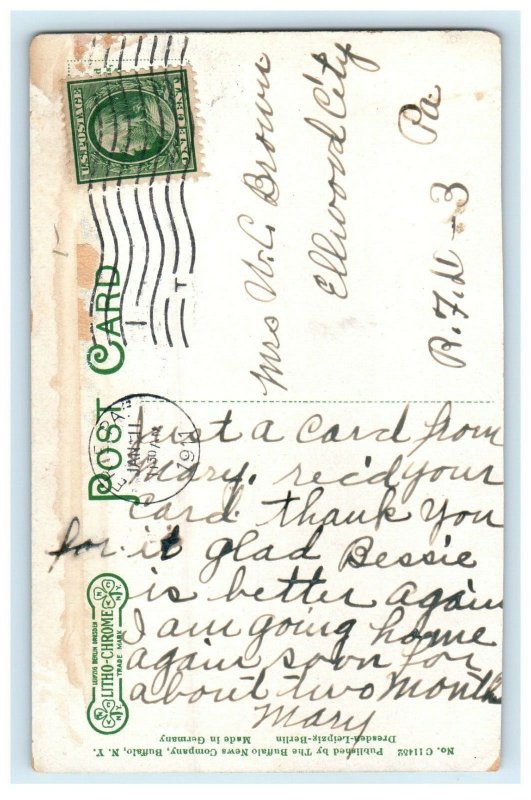 POST CARD
U.S.POSTAGE
ONE CENT
ERIE PA
JAN 11
1911
T
Mrs W. C. Brown
Ellwood City
Pa
R.F.D - 3
Just a card from
Mary, rec'd your
card thank you
for it glad Bessie
is better again
I am going home
again soon for
about two month
Mary
LEIPZIG BERLIN DRESDEN
LITHO-CHROME
TRADE MARK
No. C11452 Published by The Buffalo News Company, Buffalo, N. Y.
Dresden-Leipzig-Berlin Made in Germany